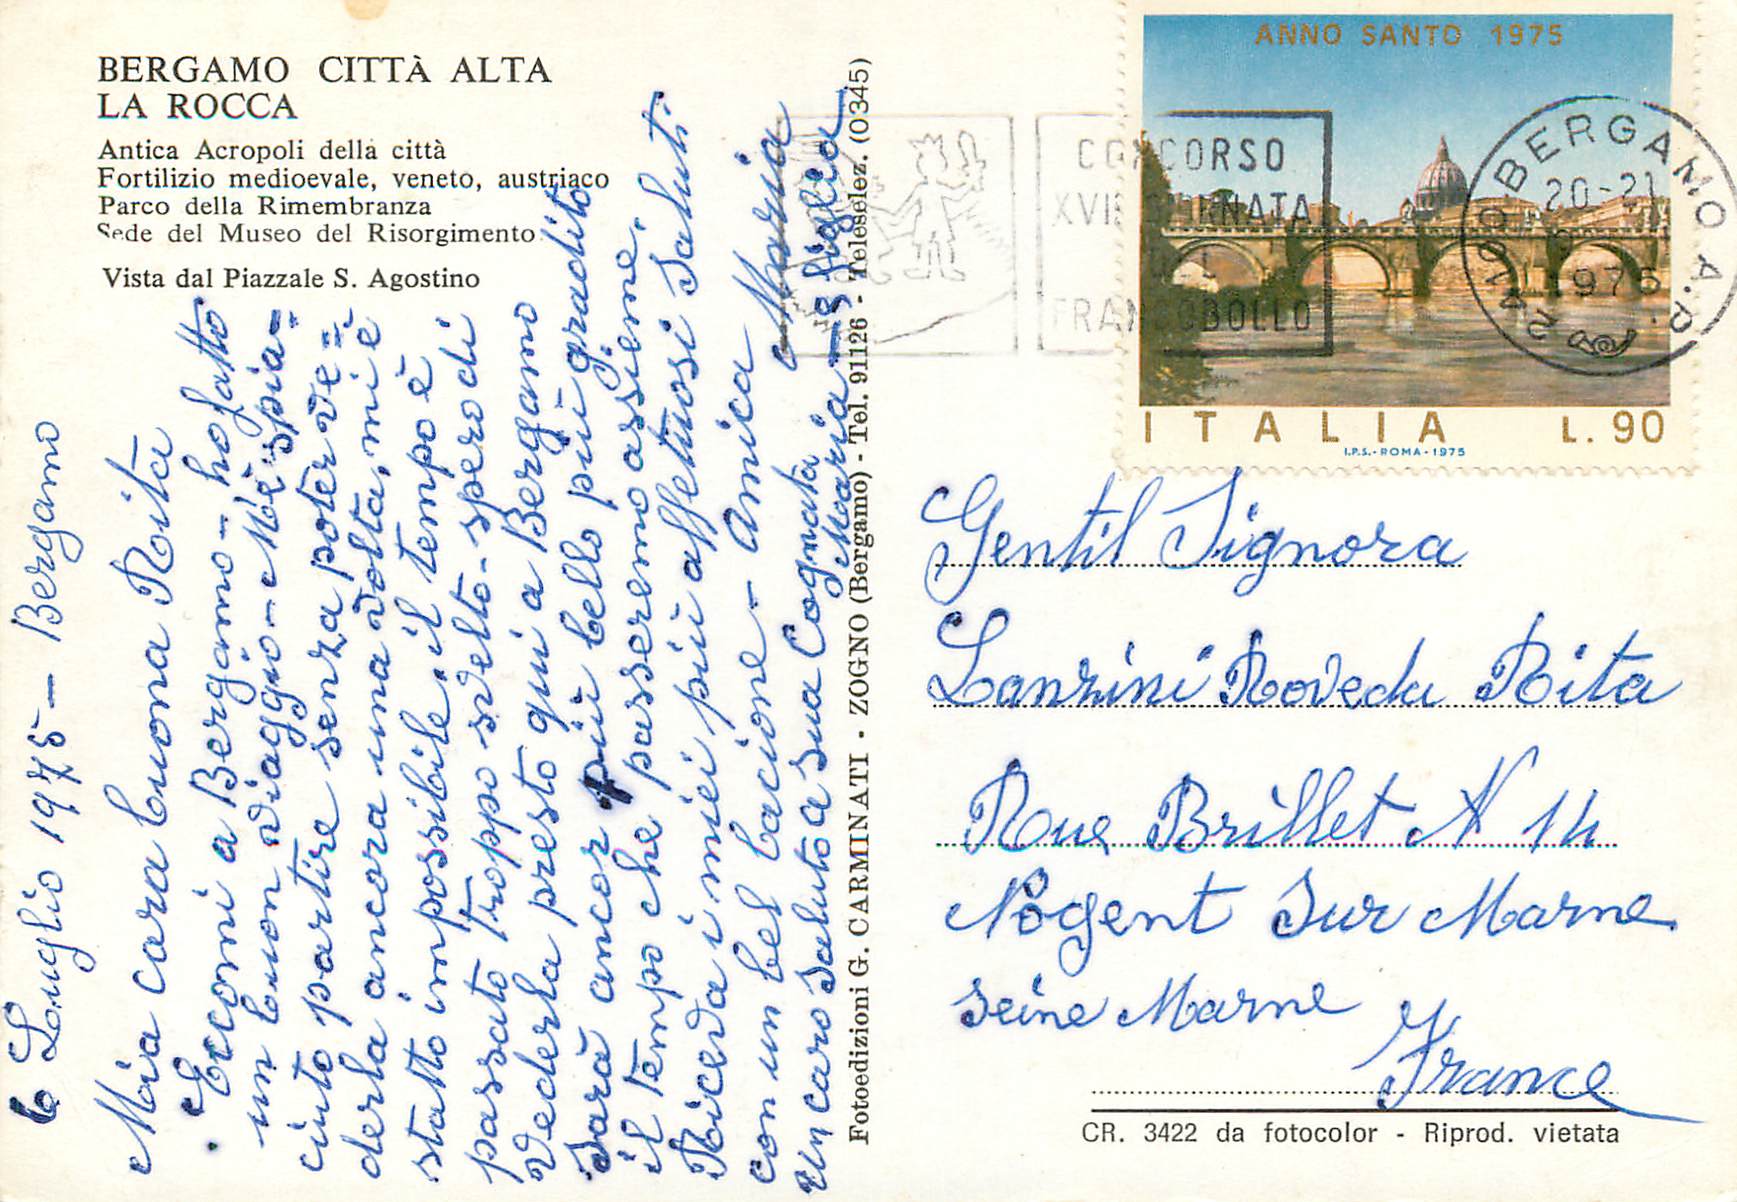 BERGAMO CITTÀ ALTA
LA ROCCA
Antica Acropoli della città
Fortilizio medioevale, veneto, austriaco
Parco della Rimembranza
Sede del Museo del Risorgimento
Vista dal Piazzale S. Agostino
6 Luglio 1975 — Bergamo
Mia cara buona Rita
Eccomi a Bergamo - ho fatto
un buon viaggio - Mè spia=
ciuto partire senza poterve=
derla ancora una volta, mi è
stato impossibile; il tempo è
passato troppo svelto - spero di
vederla presto qui a Bergamo
sarà ancor più bello più gradito
il tempo che passeremo assieme.
Riceva i miei più affettuosi saluti
con un bel bacione - Amica Maria
Un caro saluto a sua Cognata
Maria — e figlia
Fotoedizioni G. CARMINATI - ZOGNO (Bergamo) - Tel. 91126 - Teleselez. (0345)
CONCORSO
XVII GIORNATA
DEL
FRANCOBOLLO
ANNO SANTO 1975
ITALIA L. 90
I.P.S. - ROMA - 1975
24100 BERGAMO A.P.
20-21
1975
Gentil Signora
Lanzini Roveda Rita
Rue Brillet N 14
Nogent Sur Marne
Seine Marne
France
CR. 3422 da fotocolor - Riprod. vietata